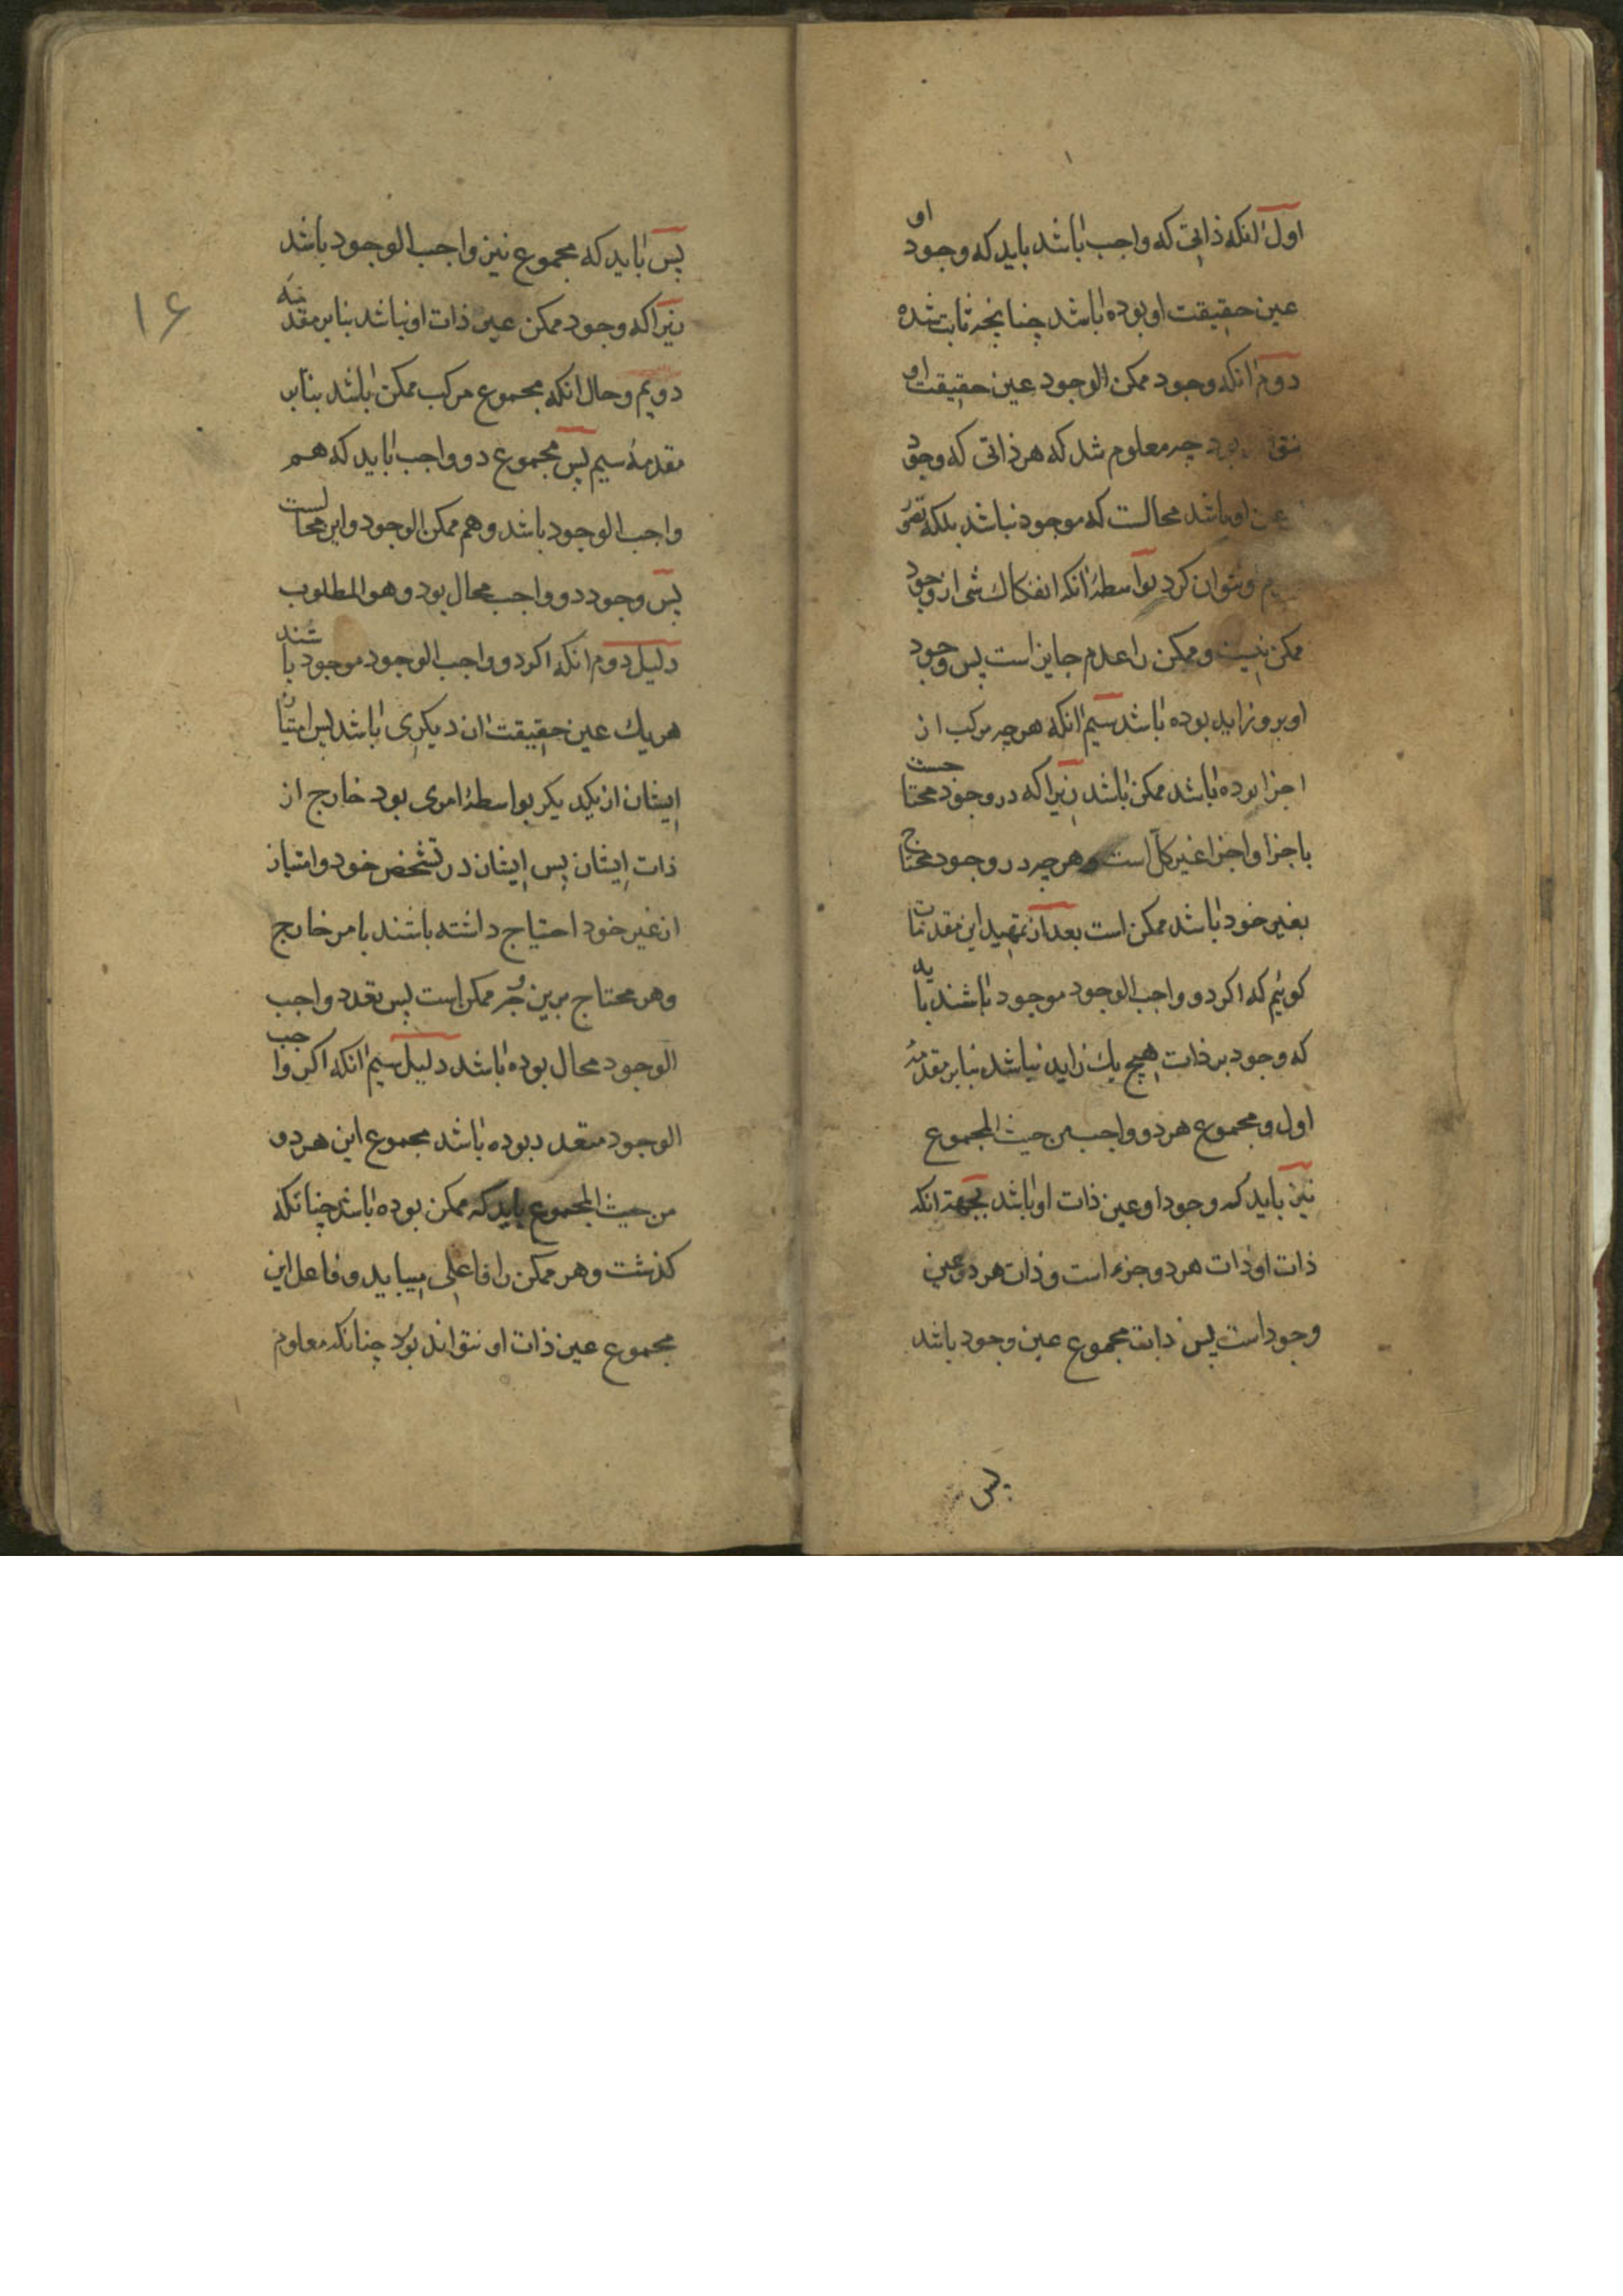 اول انکه ذاتی که واجب باشد باید که وجود او
عین حقیقت او بوده باشد چنانچه ثابت شده
دوم انکه وجود ممکن الوجود عین حقیقت او
بود چه معلوم شد که هر ذاتی که وجود
عین او باشد محالست که موجود نباشد بلکه تصور
نتوان کرد بواسطهٔ انکه انفکاک شی از وجود
ممکن نیست و ممکن را عدم جایز است پس وجود
او برو زاید بوده باشد سیم انکه هر چه مرکب از
اجزا بوده باشد ممکن باشد زیرا که در وجود محتا
باجزا و اجزا غیر کل است و هر چه در وجود محتاج
بغیر خود باشد ممکن است بعد از تمهید این مقدمات
کوئیم که اکر دو واجب الوجود موجود باشند باید
که وجود بر ذات هیچ یک زاید نباشد بنابر مقدمهٔ
اول و مجموع هر دو واجب من حیث المجموع
نیز باید که وجود او عین ذات او باشد بجهة انکه
ذات او ذات هر دو جزء است و ذات هر دو عین
وجود است پس ذات مجموع عین وجود باشد
پس
۱۶
پس باید که مجموع نیز واجب الوجود باشد
زیرا که وجود ممکن عین ذات او نباشد بنابر مقدمه
دویم و حال انکه مجموع مرکب ممکن باشد بنابر
مقدمهٔ سیم پس مجموع دو واجب باید که هم
واجب الوجود باشد و هم ممکن الوجود و این محالست
پس وجود دو واجب محال بود و هو المطلوب
دلیل دوم انکه اکر دو واجب الوجود موجود باشند
هر یک عین حقیقت ان دیکری باشد پس امتیاز
ایشان از یکدیکر بواسطهٔ امری بود خارج از
ذات ایشان پس ایشان در تشخص خود و امتیاز
از غیر خود احتیاج داشته باشند بامر خارج
و هر محتاج برین وجه ممکن است پس تعدد واجب
الوجود محال بوده باشد دلیل سیم انکه اکر واجب
الوجود متعدد بوده باشد مجموع این هر دو
من حیث المجموع باید که ممکن بوده باشد چنانکه
کذشت و هر ممکن را فاعلی میباید و فاعل این
مجموع عین ذات او نتواند بود چنانکه معلوم